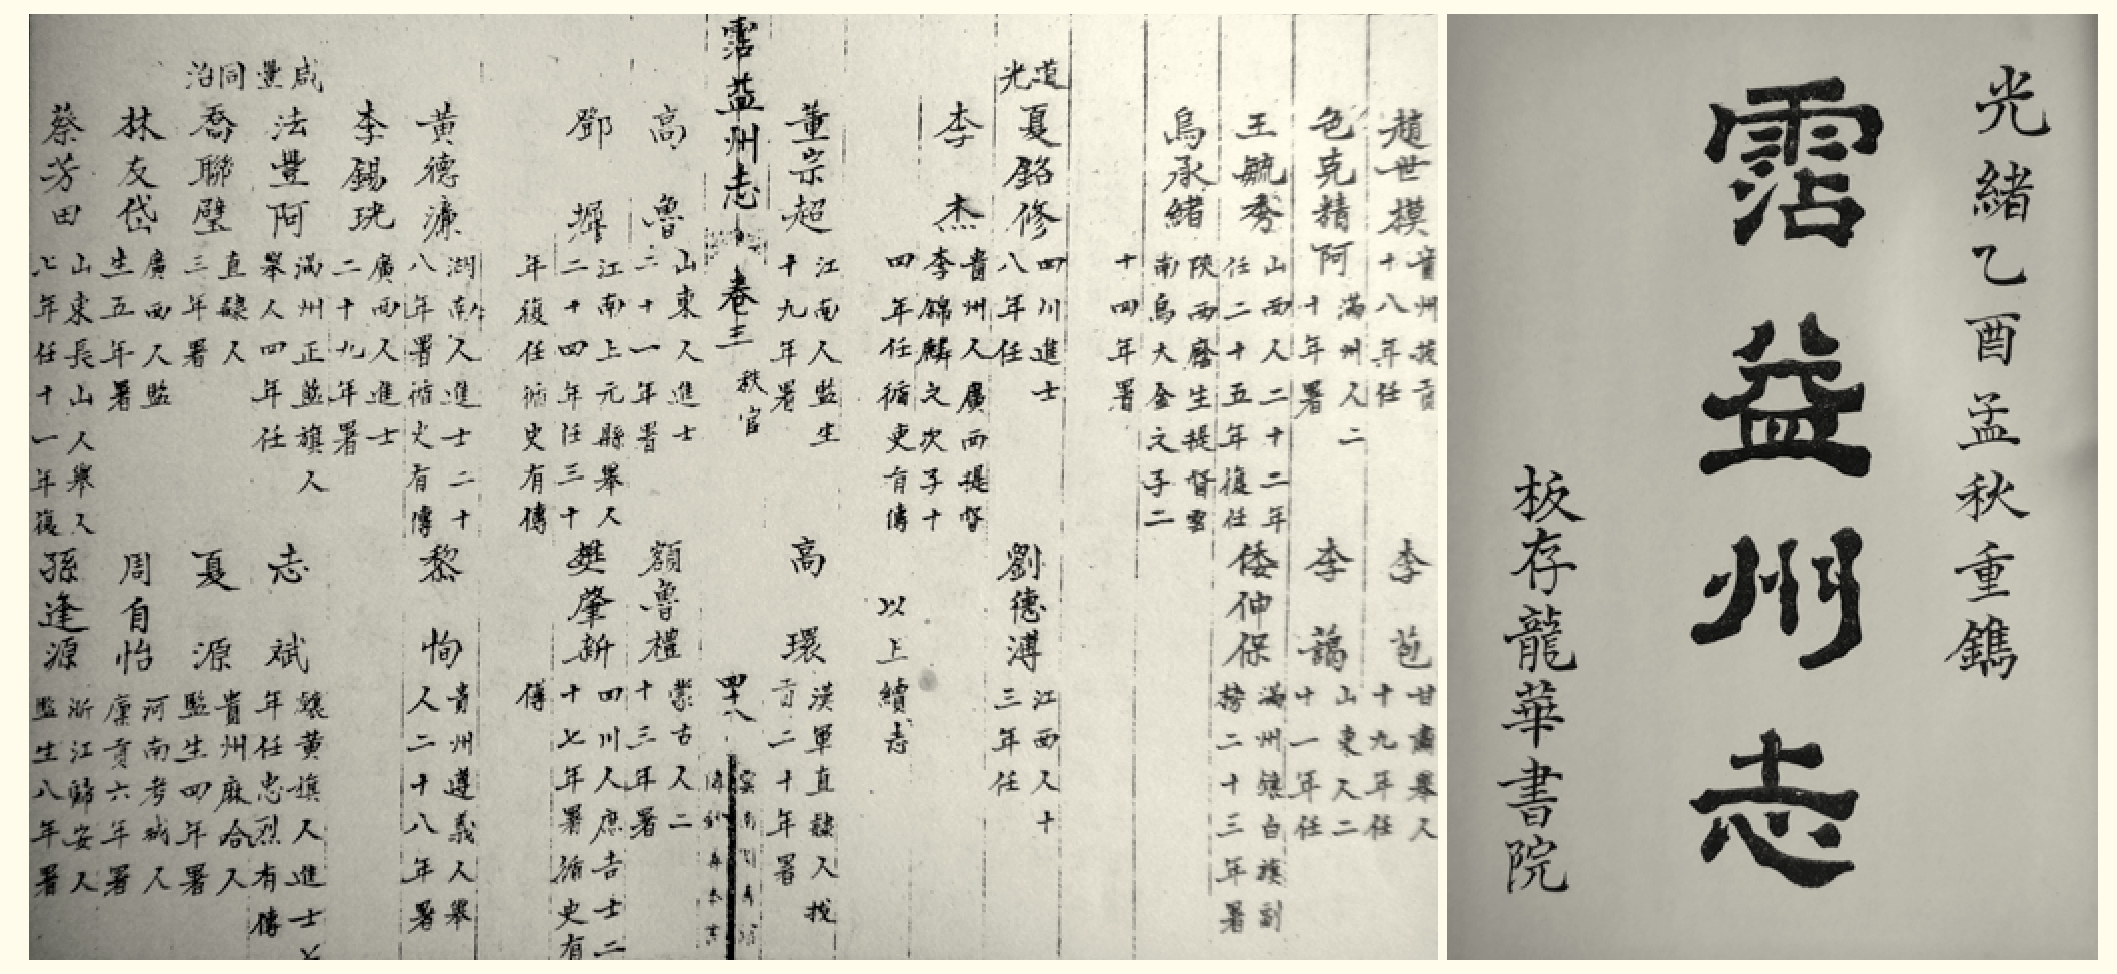 光緒乙酉孟秋重鐫
霑益州志
板存龍華書院
趙世摸
貴州拔貢
十八年任
李苞
甘肅舉人
十九年任
色克精阿
滿州人二
十年署
李藹
山東人二
十一年任
王毓秀
山西人二十二年
任二十五年復任
倭伸保
滿州鑲白旗副
榜二十三年署
烏承緒
陝西廕生提督雲
南烏大金之子二
十四年署
道光
夏銘修
四川進士
八年任
劉德溥
江西人十
三年任
李杰
貴州人廣西提督
李錦麟之次子十
四年任循吏有傳
以上續志
董宗超
江南人監生
十九年署
高環
漢軍直隸人拔
貢二十年署
霑益州志 卷三 秩官 四十八
高魯
山東人進士
二十一年署
額魯禮
蒙古人二
十三年署
鄧
江南上元縣舉人
二十四年任三十
年復任循史有傳
樊肇新
四川人庶吉士二
十七年署循史有
傳
黃德濂
湖南人進士二十
八年署循史有傳
黎恂
貴州遵義人舉
人二十八年署
李錫珖
廣西人進士
二十九年署
咸豐
法豐阿
滿州正藍旗人
舉人四年任
志斌
鑲黃旗人進士
年任忠烈有傳
同治
喬聯璧
直隸人
三年署
夏源
貴州麻哈人
監生四年署
林友岱
廣西人監
生五年署
周自怡
河南考城人
廩貢六年署
蔡芳田
山東長山人舉人
七年任十一年復
孫逢源
浙江歸安人
監生八年署